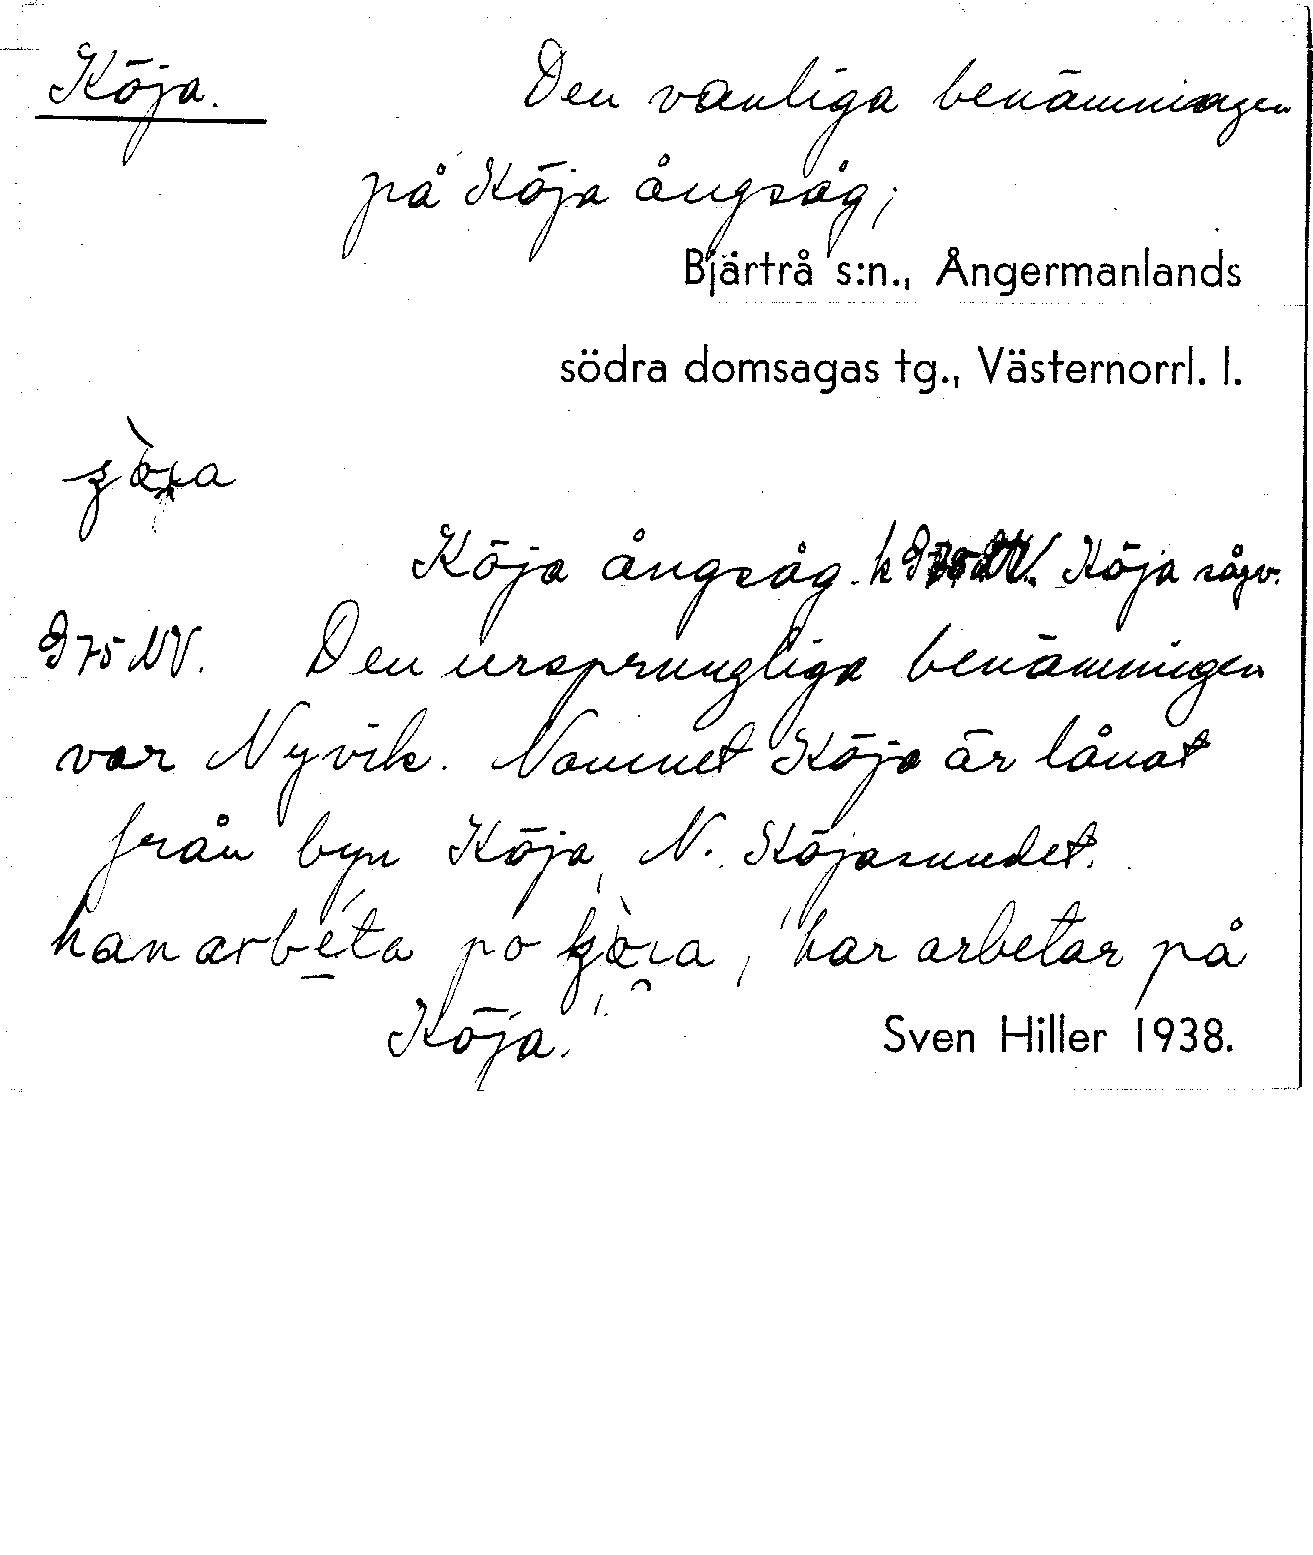 Köja. Den vanliga benämningen
på Köja ångsåg;
Bjärtrå s:n., Ångermanlands
södra domsagas tg., Västernorrl. l.
Köja ångsåg. k Köja sågv.
G 75 NV. Den ursprungliga benämningen
var Nyvik. Namnet Köja är lånat
från byn Köja, N. Köjasundet.
han arbéta po , "han arbetar på
Köja."
Sven Hiller 1938.